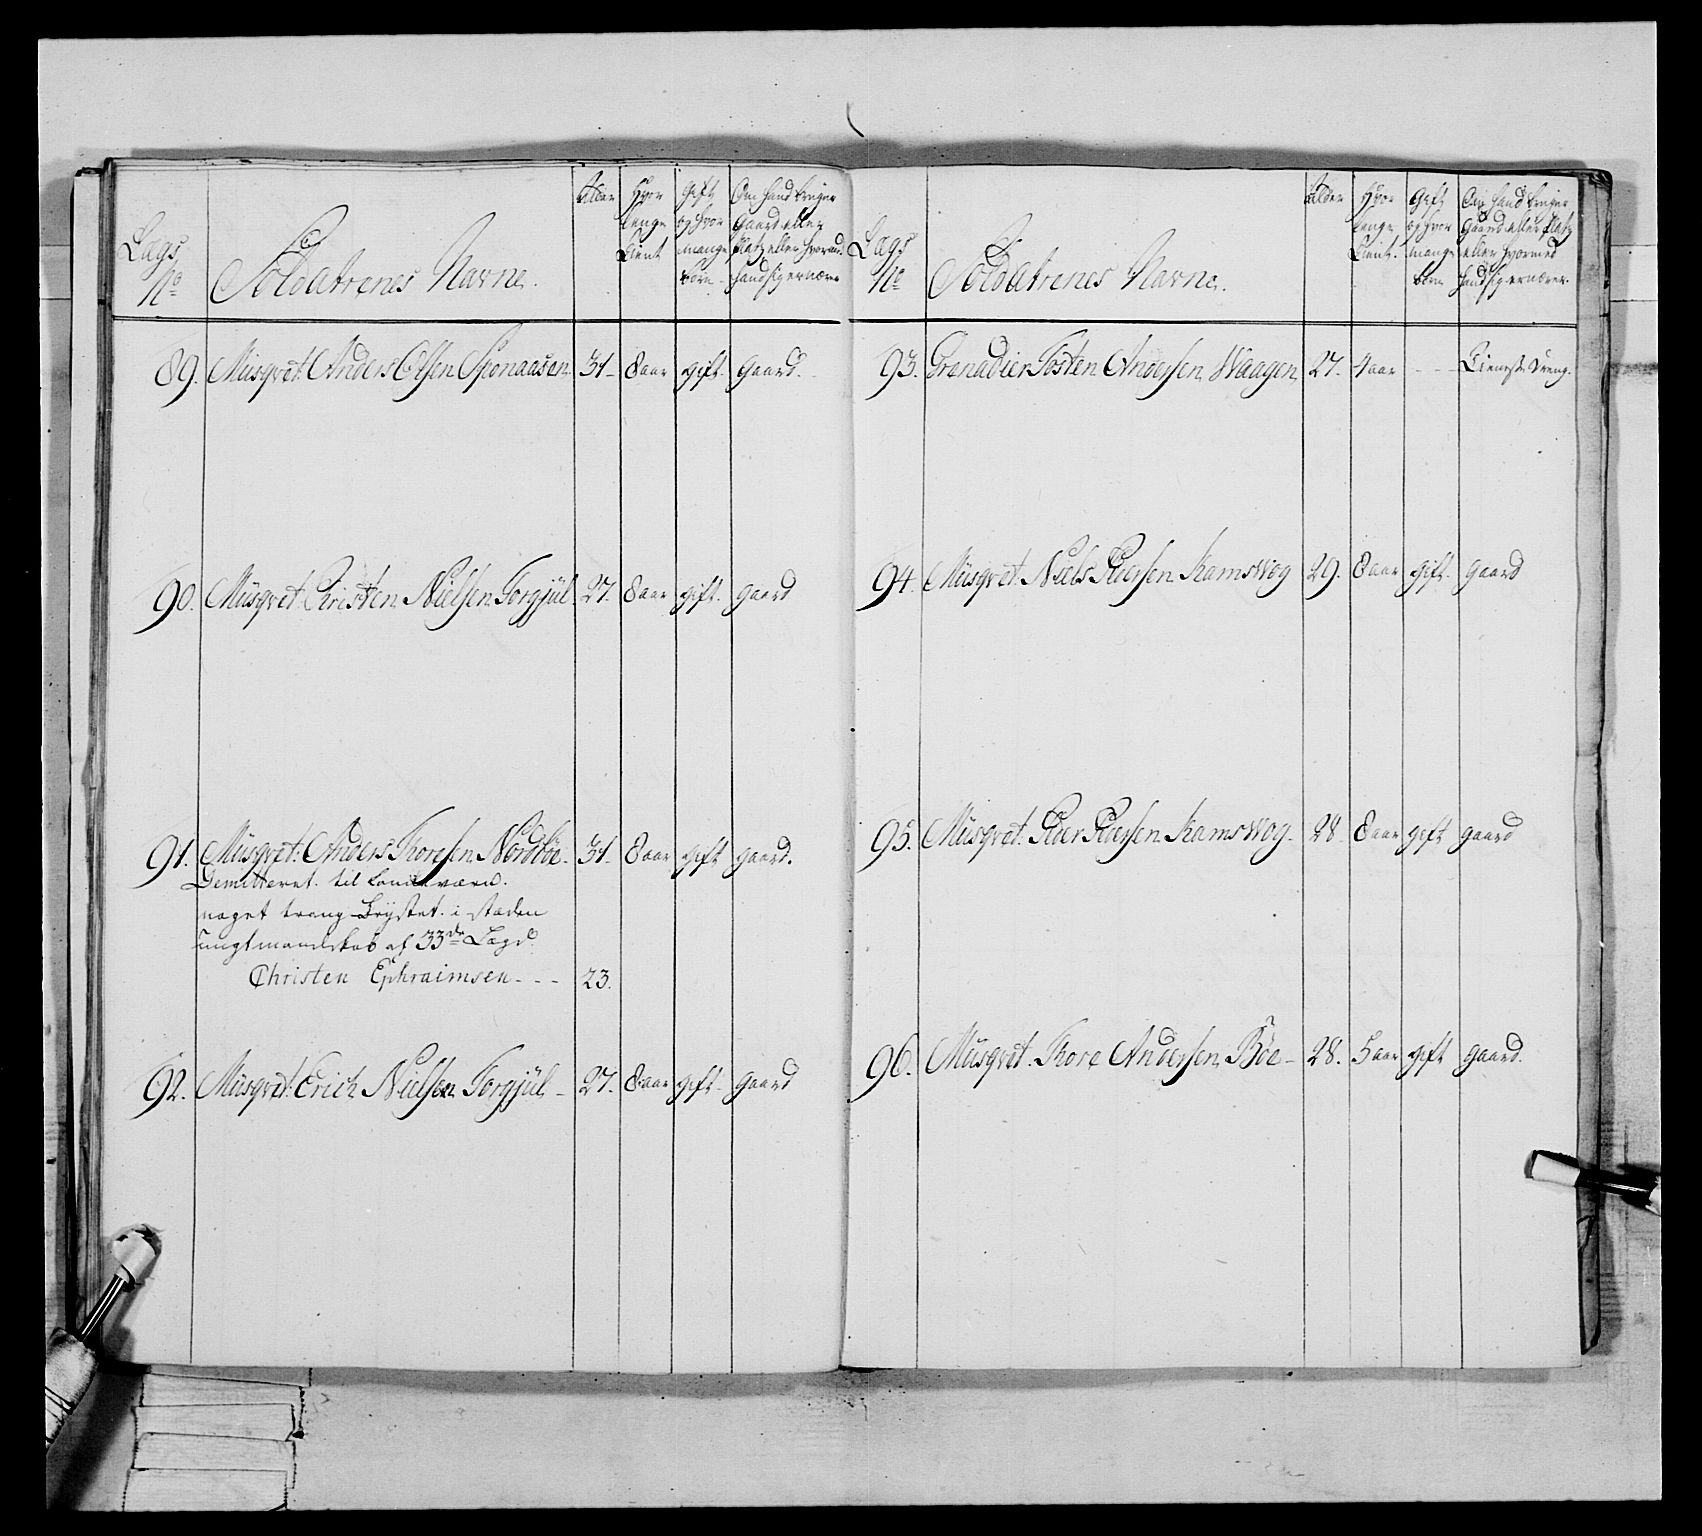 Lags No
Soldaternes Navne.
Alder
Hvor lenge tient
Gift og hvor mange börn
Om hand bruger Gaard eller Platz eller hvorved hand sig ernærer
89. Musqvet. Anders Olsen 31 8 aar gift. gaard.
90. Musqvet. Christen Nielsen Torgjül 27. 8 aar gift. gaard
91. Musqvet. Anders Thoresen Nordböe 31 8 aar gift gaard.
Demitteret til Landeværn.
noget trang Brystet. i staden
ungt mandskab af 33de Lægd
Christen Ephraimsen - - - 23.
92. Musqvet. Erich Nielsen Torgjül 27. 8 aar gift. gaard
Lags No
Soldaternes Navne.
Alder
Hvor lenge tient.
Gift og hvor mange börn
Om hand bruger Gaard eller Platz eller hvormed hand sig ernærer.
93. Grenadier Tosten Andersen Waagen 27. 4 aar - - - Tieneste Dreng.
94. Musqvet. Niels Pedersen Kamswog 29. 8 aar gift. gaard
95. Musqvet. Peder Pedersen Kamswog 28 8 aar gift gaard
96. Musqvet. Thore Andersen Böe 28. 5 aar gift gaard.